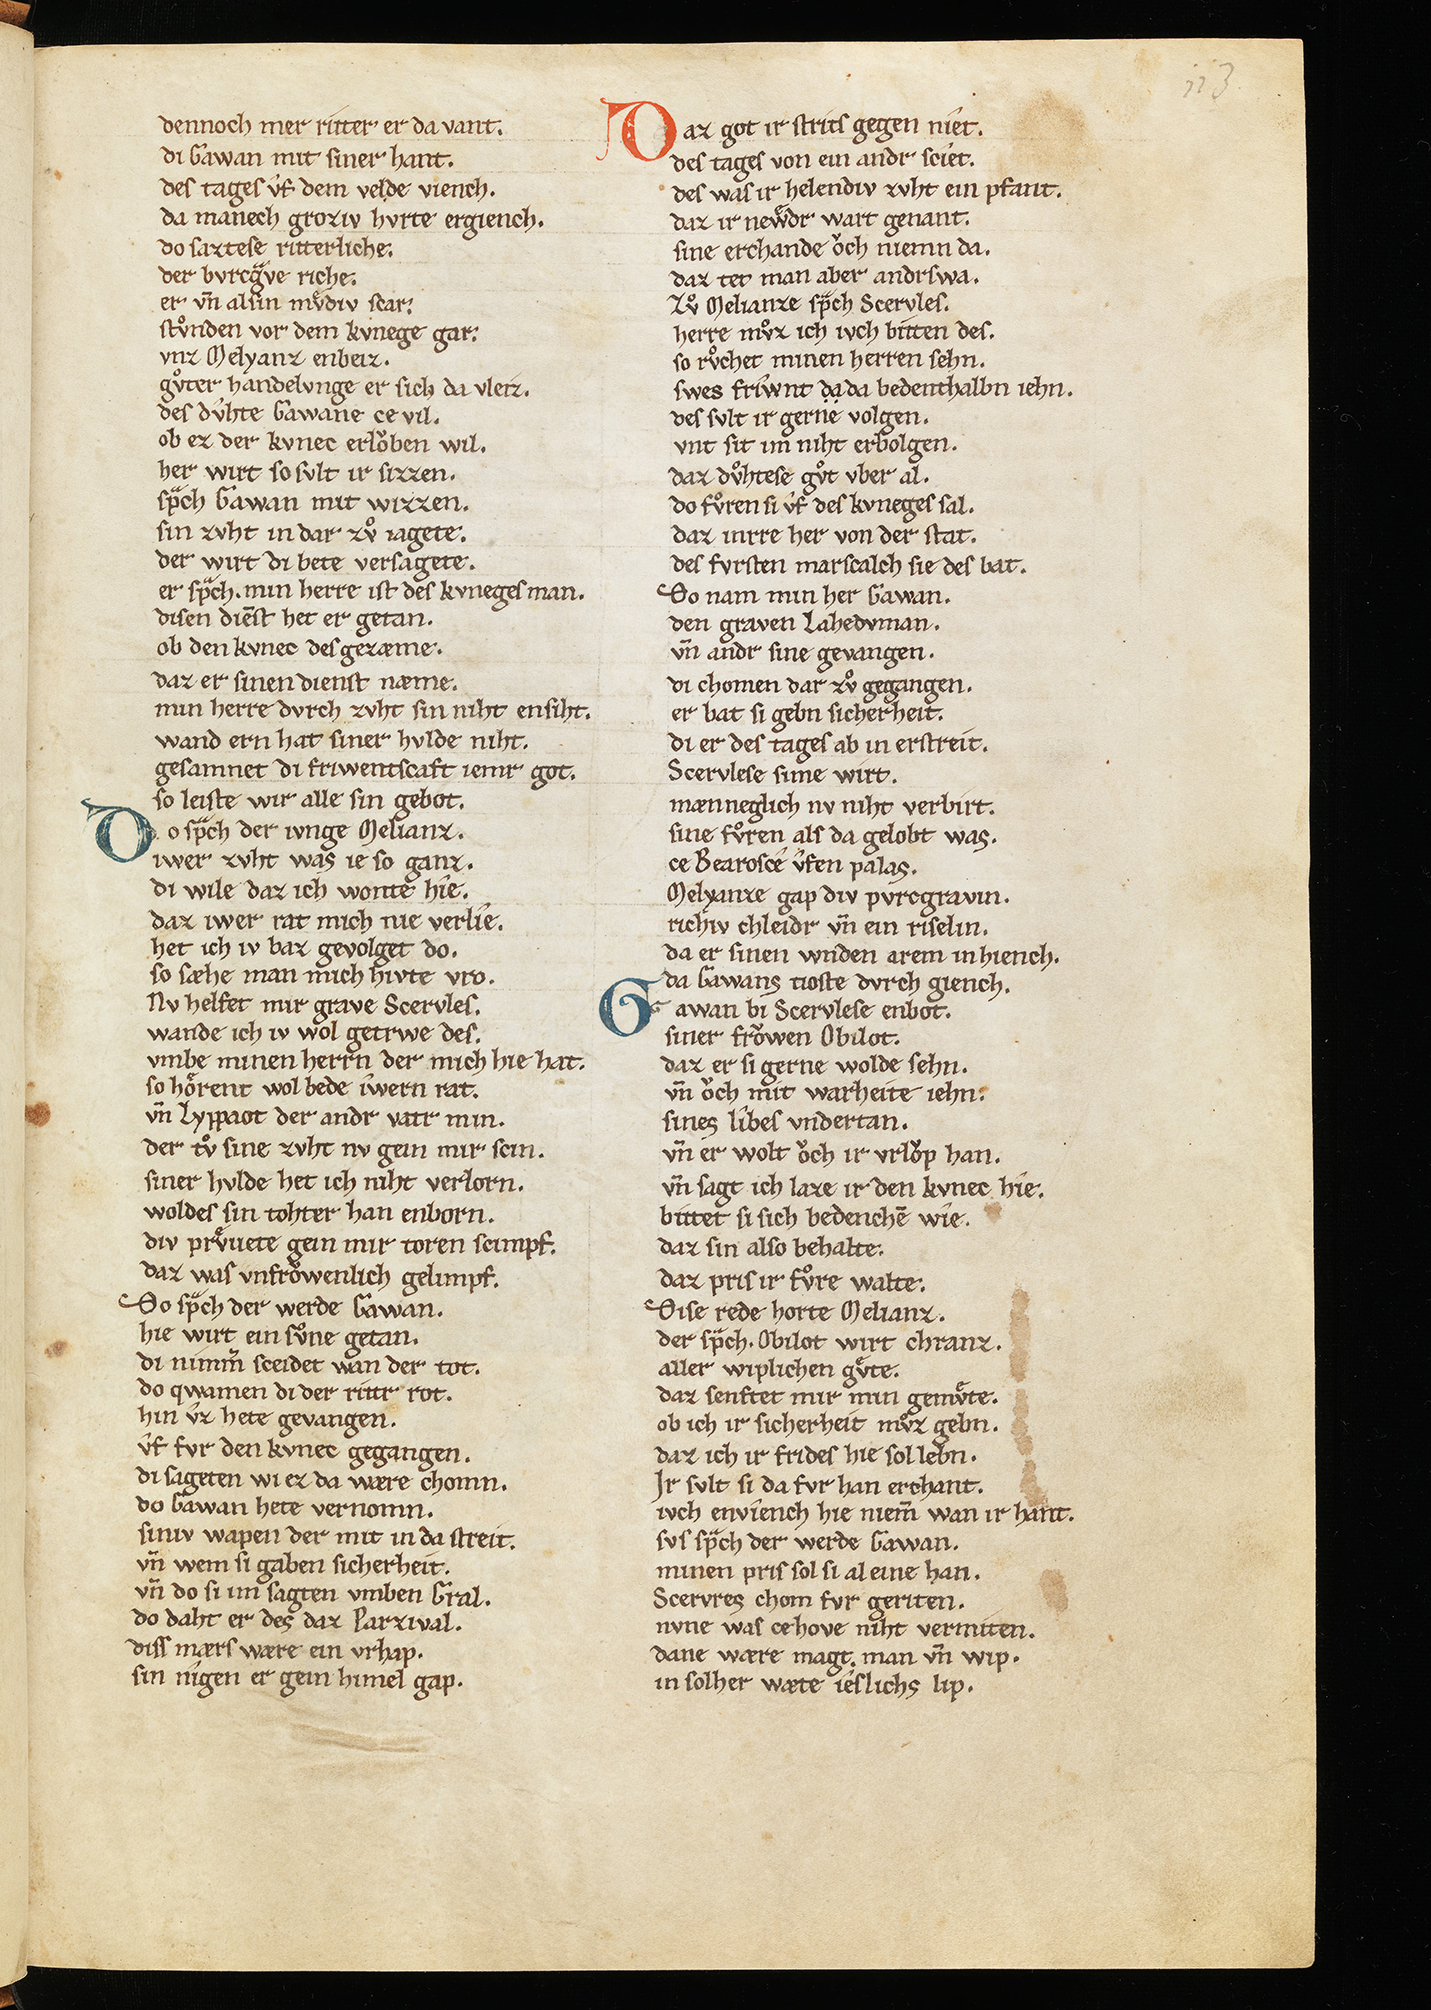 113
dennoch mer ritter er da vant.
di Gawan mit siner hant.
des tages v̂f dem velde viench.
da manech groziv hvrte ergiench.
do saztese ritterliche.
der bvrcgᵃve riche.
er vn̄ alsin mvͤdiv scar.
stvͦnden vor dem kvnege gar.
vnz Melyanz enbeiz.
gvͦter handelvnge er sich da vleiz.
des dv̂hte Gawane ce vil.
ob ez der kvnec erlǒben wil.
her wirt so svlt ir sizzen.
spᵃch Gawan mit wizzen.
sin zvht in dar zvͦ iagete.
der wirt di bete versagete.
er spᵃch. min herre ist des kvneges man.
disen diēst het er getan.
ob den kvnec des gezæme.
daz er sinen dienst næme.
min herre dvrch zvht sin niht ensiht.
wand ern hat siner hvlde niht.
gesamnet di friwentscaft iemr got.
so leiste wir alle sin gebot.
Do spᵃch der ivnge Melianz.
iwer zvht was ie so ganz.
di wile daz ich wonte hie.
daz iwer rat mich nie verlie.
het ich iv baz gevolget do.
so sæhe man mich hivte vro.
Nv helfet mir grave Scervles.
wande ich iv wol getrwe des.
vmbe minen herrn der mich hie hat.
so hoͤrent wol bede iwern rat.
vn̄ Lyppaot der andr vatr min.
der tvͦ sine zvht nv gein mir scin.
siner hvlde het ich niht verlorn.
woldes sin tohter han enborn.
div prvͤuete gein mir toren scimpf.
daz was vnfrǒwenlich gelimpf.
Do spᵃch der werde Gawan.
hie wirt ein svͦne getan.
di nimm̄ sceidet wan der tot.
do qwamen di der rittr rot.
hin v̂z hete gevangen.
v̂f fvr den kvnec gegangen.
di sageten wi ez da wære chomn.
do Gawan hete vernomn.
siniv wapen der mit in da streit.
vn̄ wem si gaben sicherheit.
vn̄ do si im sagten vmben Gral.
do daht er des daz Parzival.
diss mærs wære ein vrhap.
sin nigen er gein himel gap.
Daz got ir strits gegen niet.
des tages von ein andr sciet.
des was ir helendiv zvht ein pfant.
daz ir newedr wart genant.
sine erchande ǒch niemn da.
daz tet man aber andrswa.
Zvͦ Melianze spᵃch Scervles.
herre mvͦz ich ivch bitten des.
so rvͦchet minen herren sehn.
swes friwnt da da bedenthalbn iehn.
des svlt ir gerne volgen.
vnt sit im niht erbolgen.
daz dvͦhtese gvͦt vber al.
do fvͦren si v̂f des kvneges sal.
daz inrre her von der stat.
des fvrsten marscalch sie des bat.
Do nam min her Gawan.
den graven Lahedvman.
vn̄ andr sine gevangen.
di chomen dar zvͦ gegangen.
er bat si gebn sicherheit.
di er des tages ab in erstreit.
Scervlese sime wirt.
mænneglich nv niht verbirt.
sine fvͦren als da gelobt was.
ce Bearosce v̂fen palas.
Melyanze gap div pvrcgravin.
richiv chleidr vn̄ ein riselin.
da er sinen wnden arem in hiench.
da Gawans tioste dvrch giench.
Gawan bi Scervlese enbot.
siner frǒwen Obilot.
daz er si gerne wolde sehn.
vn̄ ǒch mit warheite iehn.
sines libes vndertan.
vn̄ er wolt ǒch ir vrlǒp han.
vn̄ sagt ich laze ir den kvnec hie.
bittet si sich bedenchē wie.
daz sin also behalte.
daz pris ir fvͦre walte.
Dise rede horte Melianz.
der spᵃch. Obilot wirt chranz.
aller wiplichen gvͤte.
daz senftet mir min gemvͤte.
ob ich ir sicherheit mvͦz gebn.
daz ich ir frides hie sol lebn.
Ir svlt si da fvr han erchant.
ivch enviench hie niem̄ wan ir hant.
svs spᵃch der werde Gawan.
minen pris sol si al eine han.
Scervres chom fvr geriten.
nvne was ce hove niht vermiten.
dane wære magt. man vn̄ wip.
in solher wæte ieslichs lip.